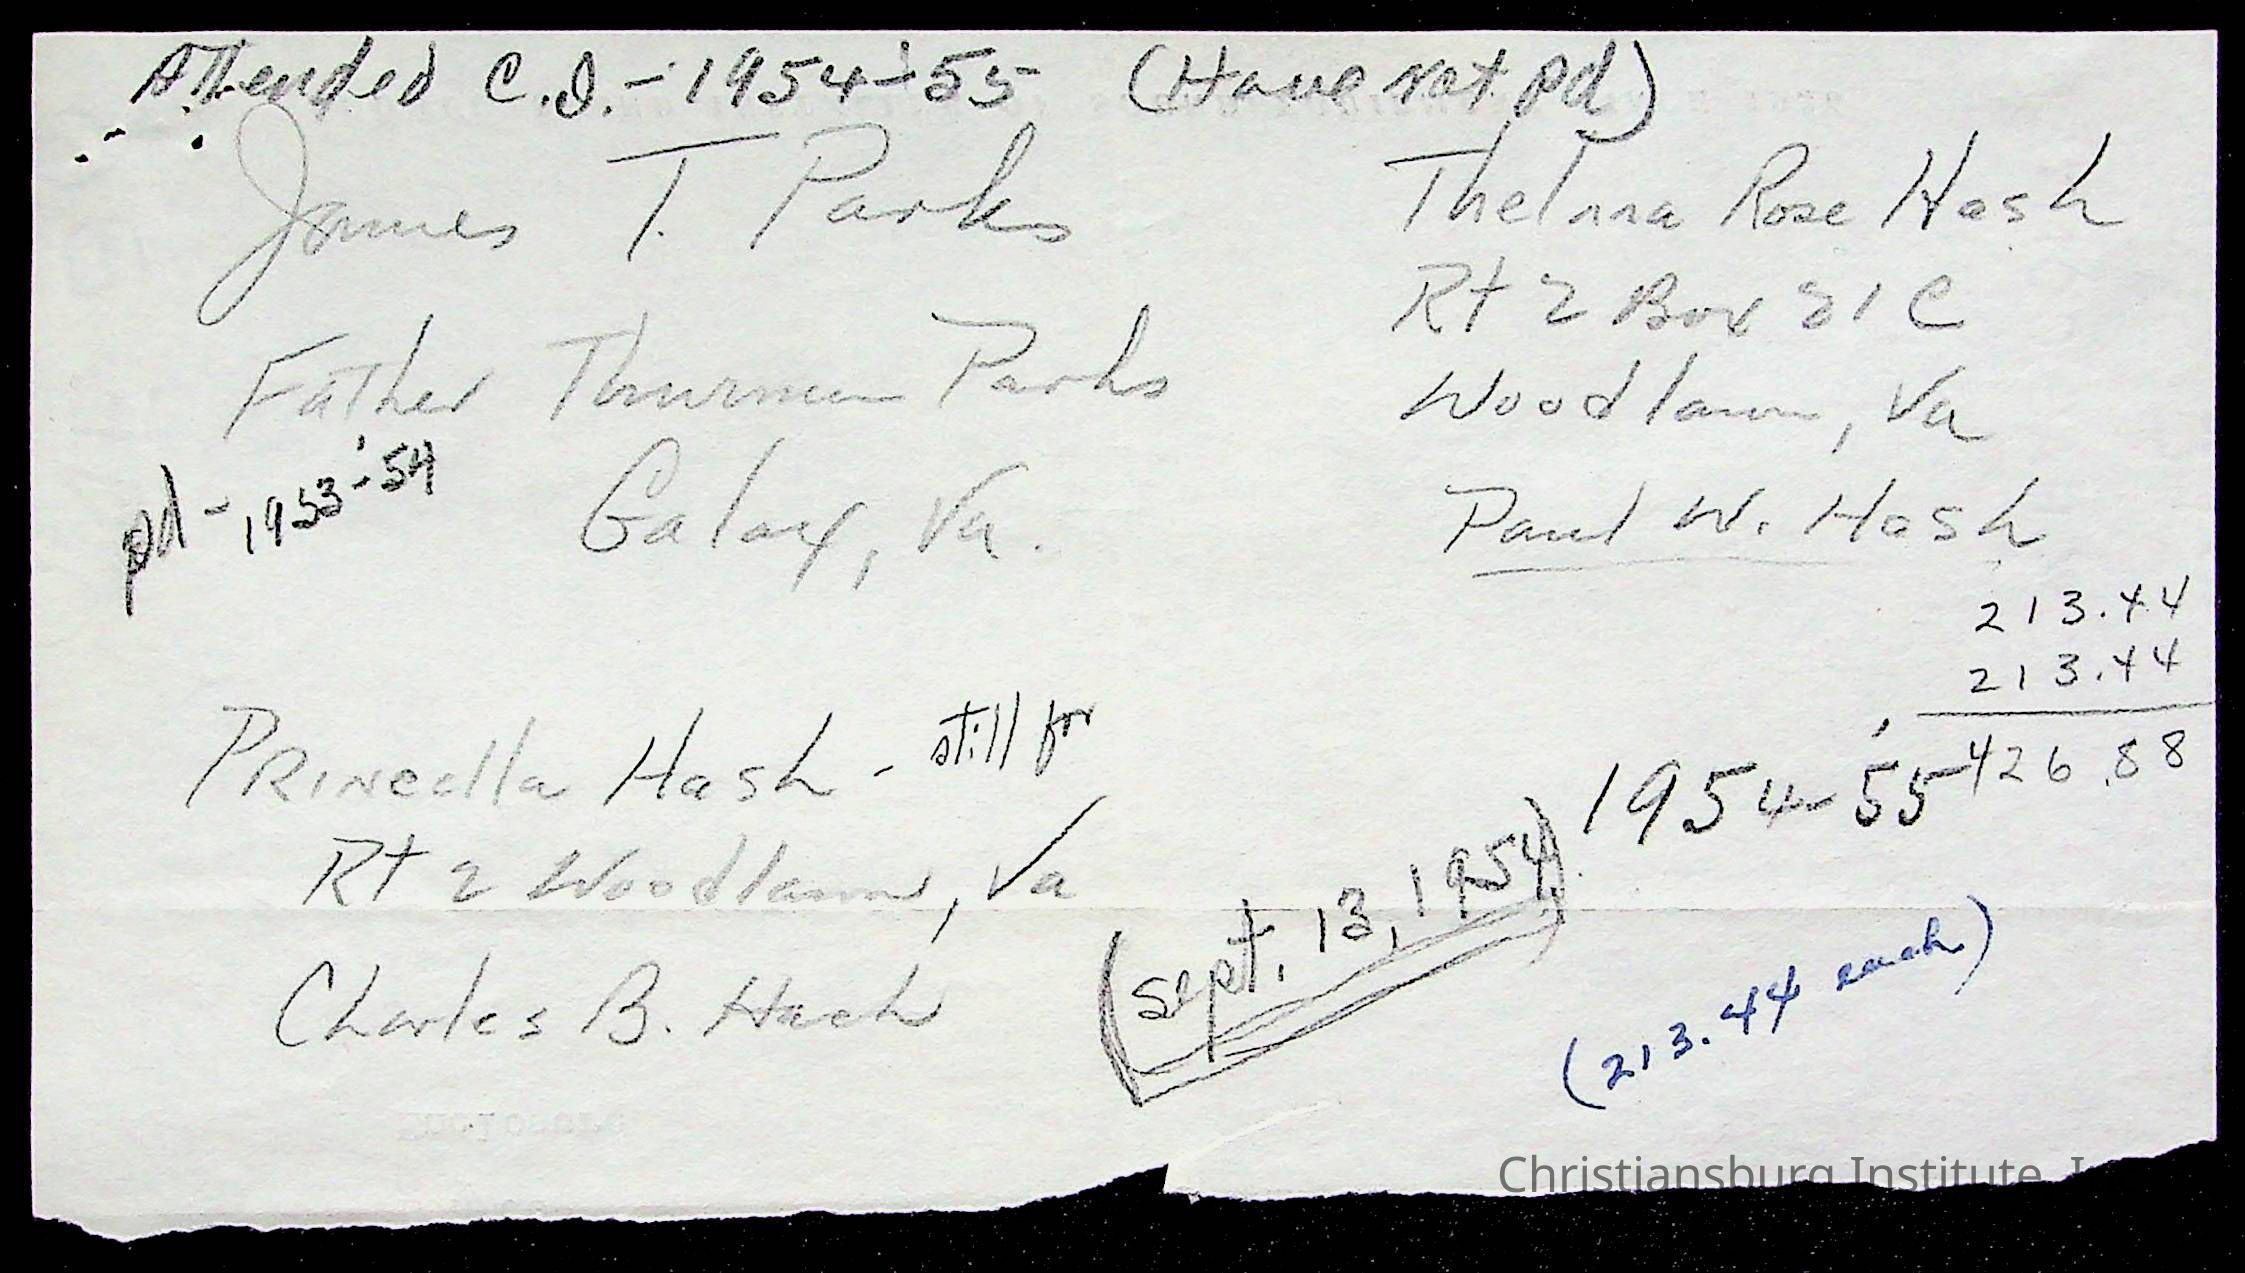 Attended C.I. - 1954-'55 (Have not pd)
James T. Parks
Father Thurman Parks
Galax, Va.
pd - 1953-'54
Thelma Rose Hash
Rt 2 Box 21 C
Woodlawn, Va
Paul W. Hash
213.44
213.44
426.88
1954-'55
Princella Hash - still for
Rt 2 Woodlawn, Va
Charles B. Hash
(Sept. 13, 1954)
(213.44 each)
Christiansburg Institute,